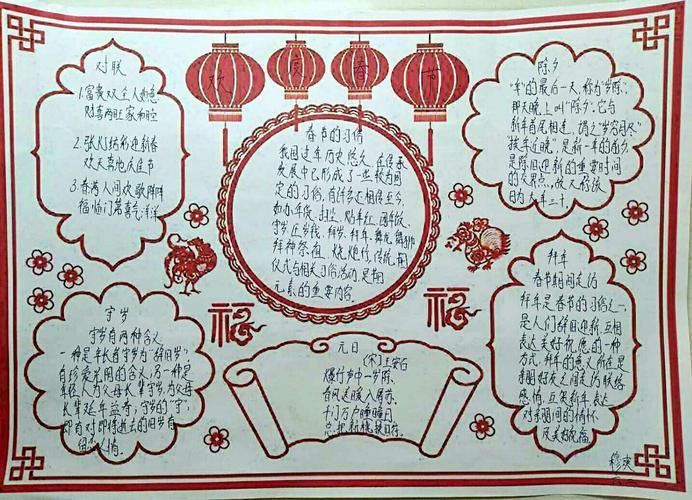 欢度春节
对联
1.富贵双全人如意
财喜两旺家和睦
2.张灯结彩迎新春
欢天喜地度佳节
3.春满人间欢歌阵阵
福临门第喜气洋洋
春节的习俗
我国过年历史悠久,在传承
发展中已形成了一些较为固
定的习俗,有许多还相传至今,
如办年货、扫尘、贴年红、团年饭、
守岁、压岁钱、拜岁、拜年、舞龙舞狮、
拜神祭祖、烧炮竹、
仪式与相关习俗活动,是节日
元素的重要内容。
除夕
“年”的最后一天,称为“岁除”,
那天晚上叫“除夕”。它与
新年首尾相连,谓之“岁穷月尽”
是除旧迎新的重要时间
的交界点。故又称该
日为大年三十。
守岁
守岁有两种含义
一种是年长者守岁为“辞旧岁”,
有珍爱光阴的含义;另一种是
年轻人为父母长辈守岁,为父母
长辈延年益寿,守岁的“守”,
即有对即将逝去的旧岁有
福
福
元日
(宋)王安石
爆竹声中一岁除,
春风送暖入屠苏。
千门万户曈曈日,
总把新桃换旧符。
拜年
春节期间走访
拜年是春节的习俗之一,
是人们辞旧迎新、互相
表达美好祝愿的一种
方式。拜年的意义所在是
亲朋好友之间走访联络
感情、互贺新年,表达
对亲朋间的情怀
及美好祝福